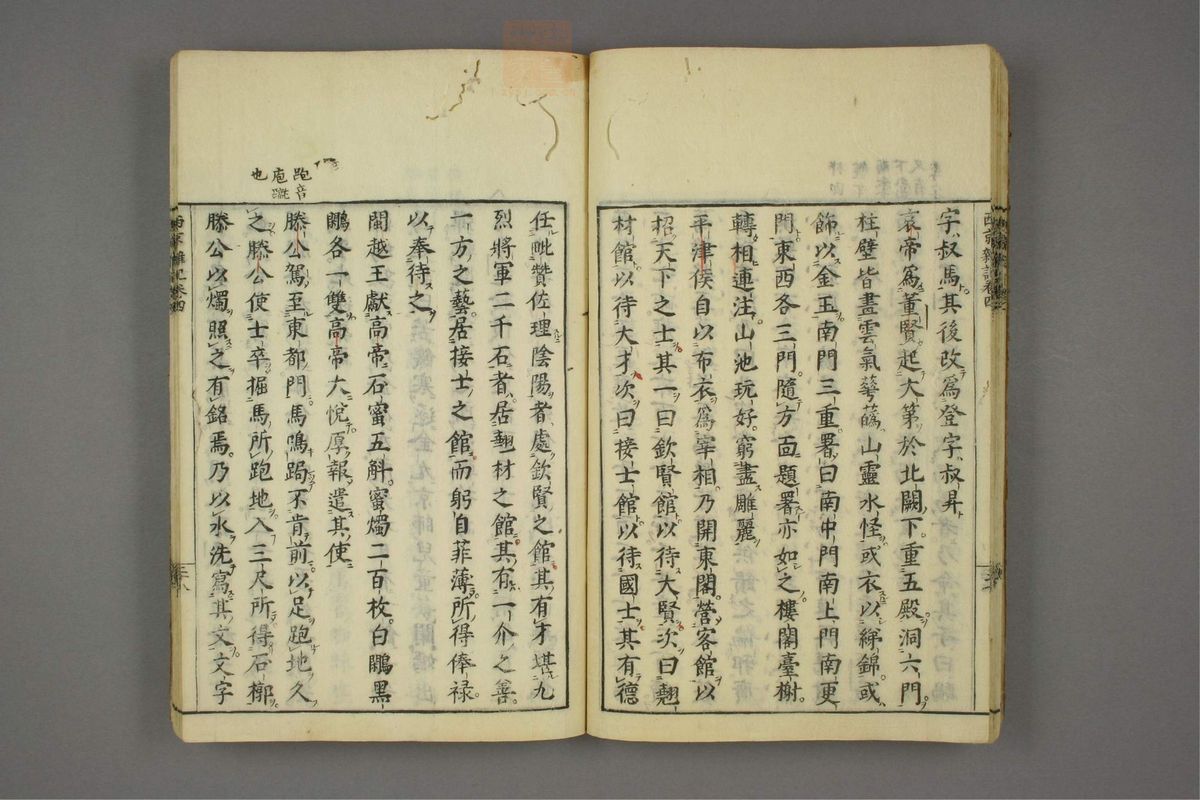 字叔馬其後改爲登字叔昇
哀帝爲董賢起大第於北闕下重五殿洞六門
柱壁皆畫雲氣華蘤山靈水怪或衣以綈錦或
飾以金玉南門三重署曰南中門南上門南更
門東西各三門隨方面題署亦如之樓閣臺榭
轉相連注山池玩好窮盡雕麗
平津侯自以布衣爲宰相乃開東閣營客館以
招天下之士其一曰欽賢館以待大賢次曰翹
材館以待大才次曰接士館以待國士其有德
任毗贊佐理陰陽者處欽賢之館其有才堪九
烈將軍二千石者居翹材之館其有一介之善
一方之藝居接士之館而躬自菲薄所得俸祿
以奉待之
閩越王獻高帝石蜜五斛蜜燭二百枚白鷴黑
鷴各一雙高帝大悅厚報遣其使
跑音
庖
也
滕公駕至東都門馬鳴跼不肯前以足跑地久
之滕公使士卒掘馬所跑地入三尺所得石槨
滕公以燭照之有銘焉乃以水洗寫其文文字
西京雜記卷四